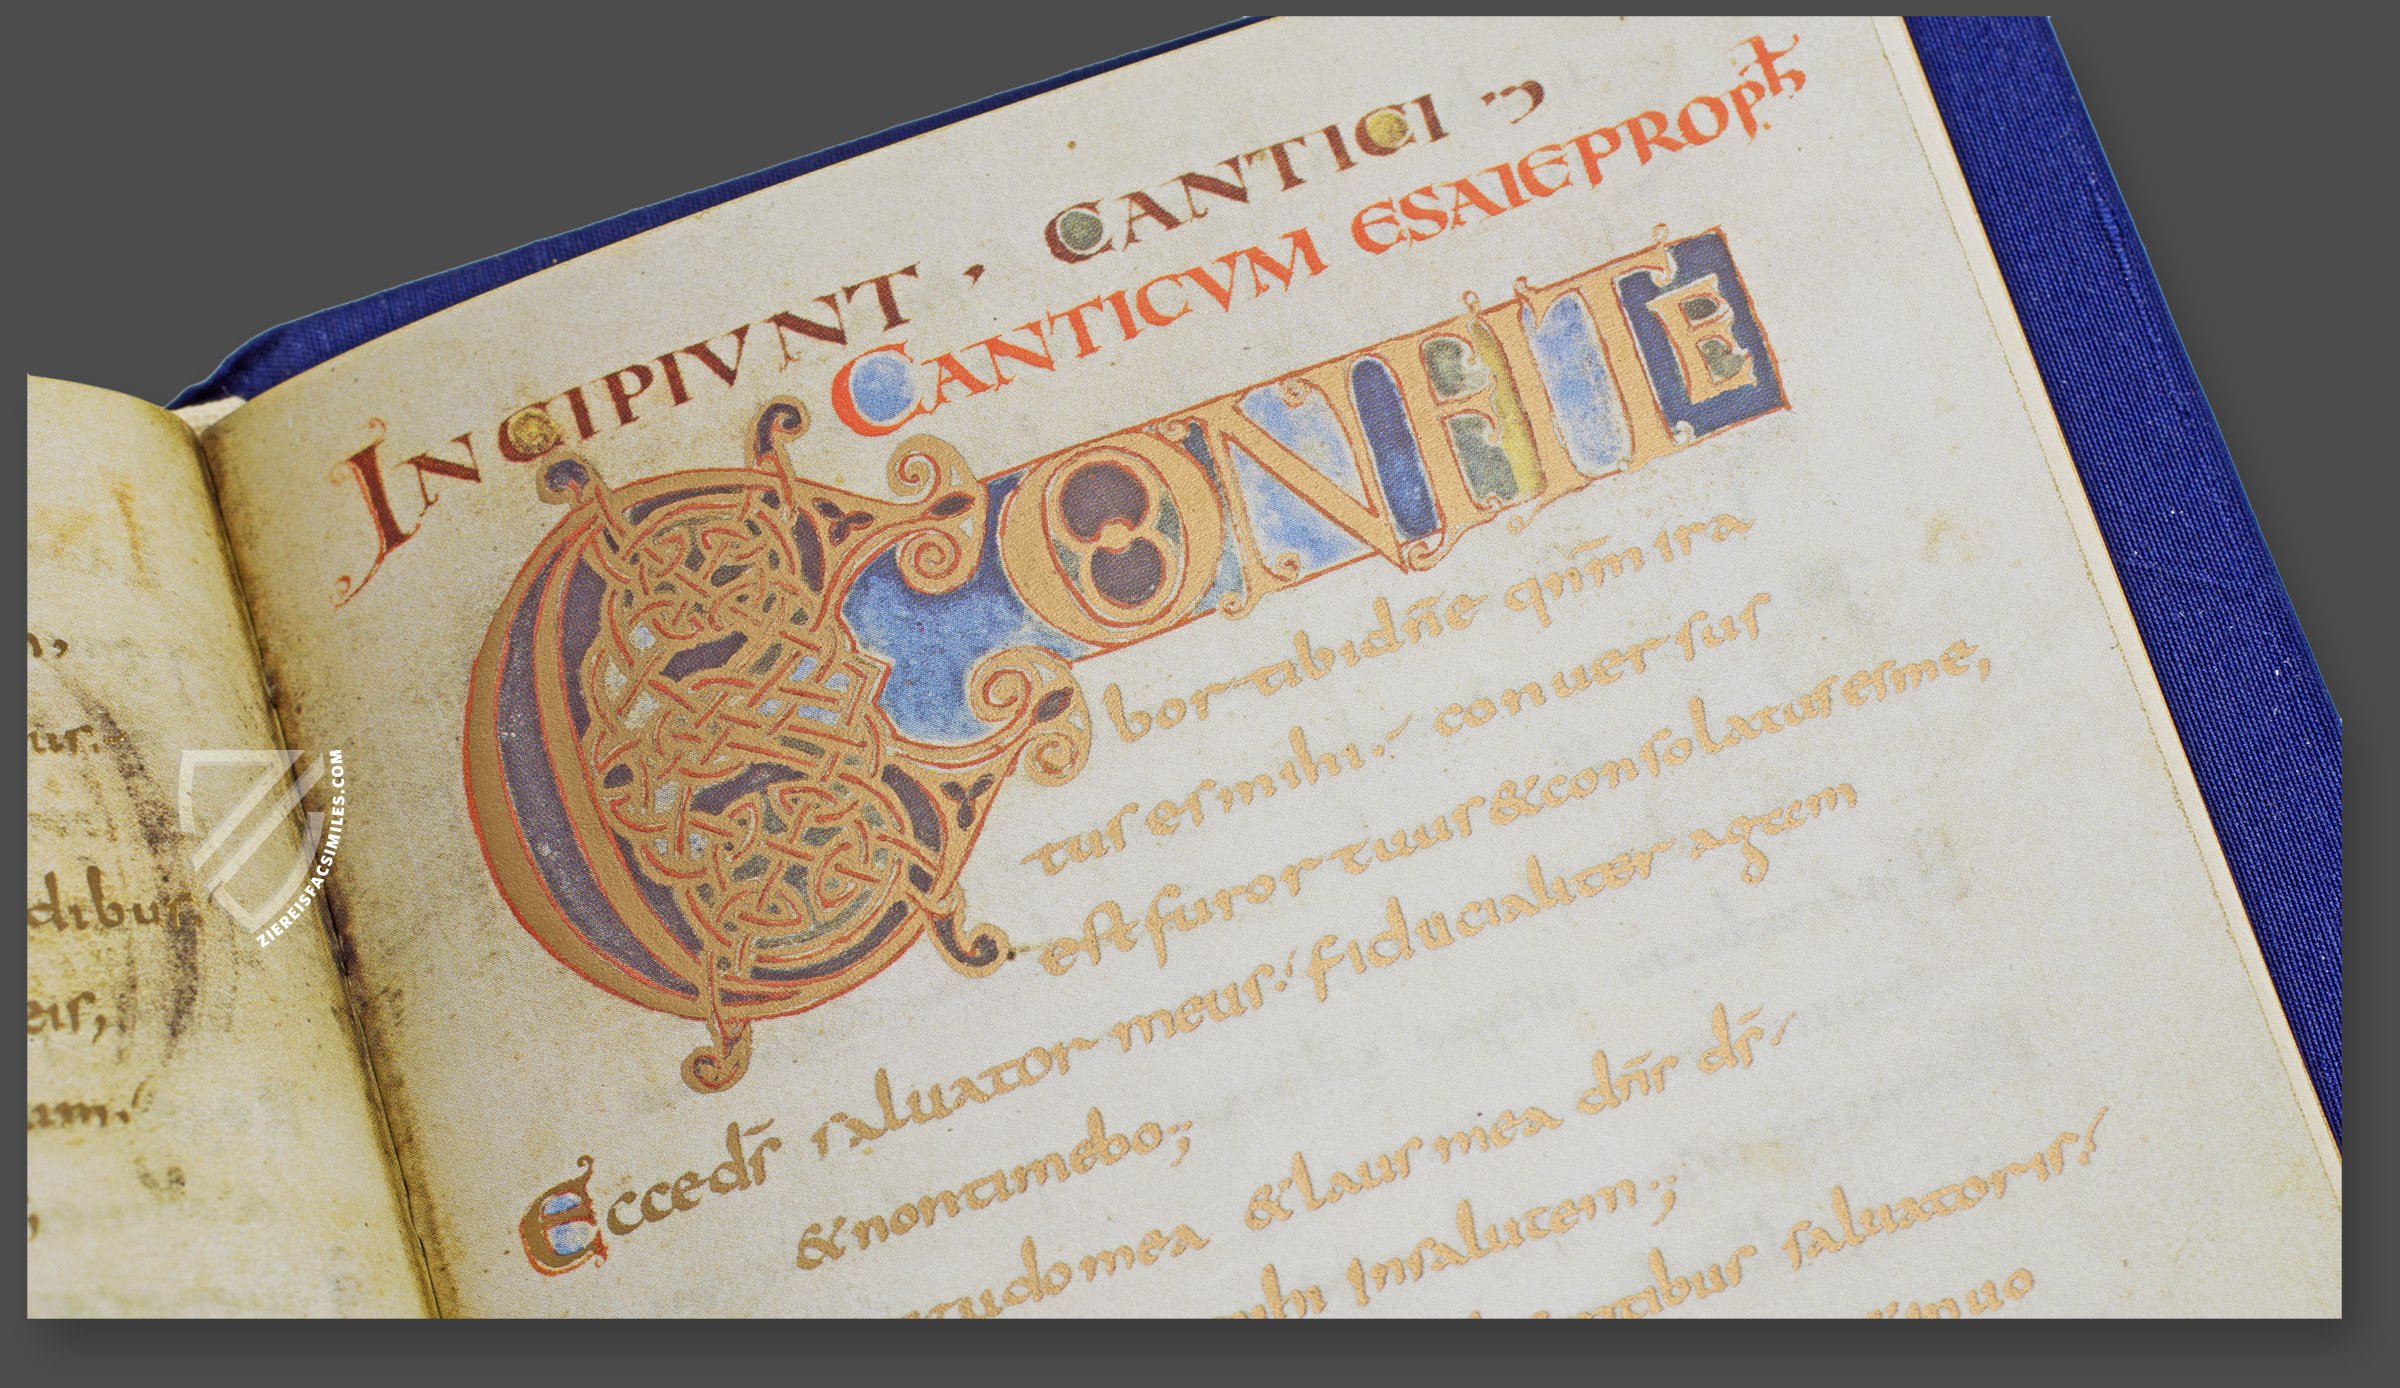 n,
iur.
dibur
eir,
um.
INCIPIVNT, CANTICI
CANTICVM ESAIE PROPh
CONFITE
bor tibi dn̄e qnm̄ ira
tur er mihi. conuersur
est furor tuur & consolatur er me,
Ecce dr̄ saluator meur. fiducialiter agam
& non timebo;
tudo mea & laur mea dn̄r dr̄.
mihi In salutem;
tibur saluatorir.
inuo
ZIEREISFACSIMILES.COM